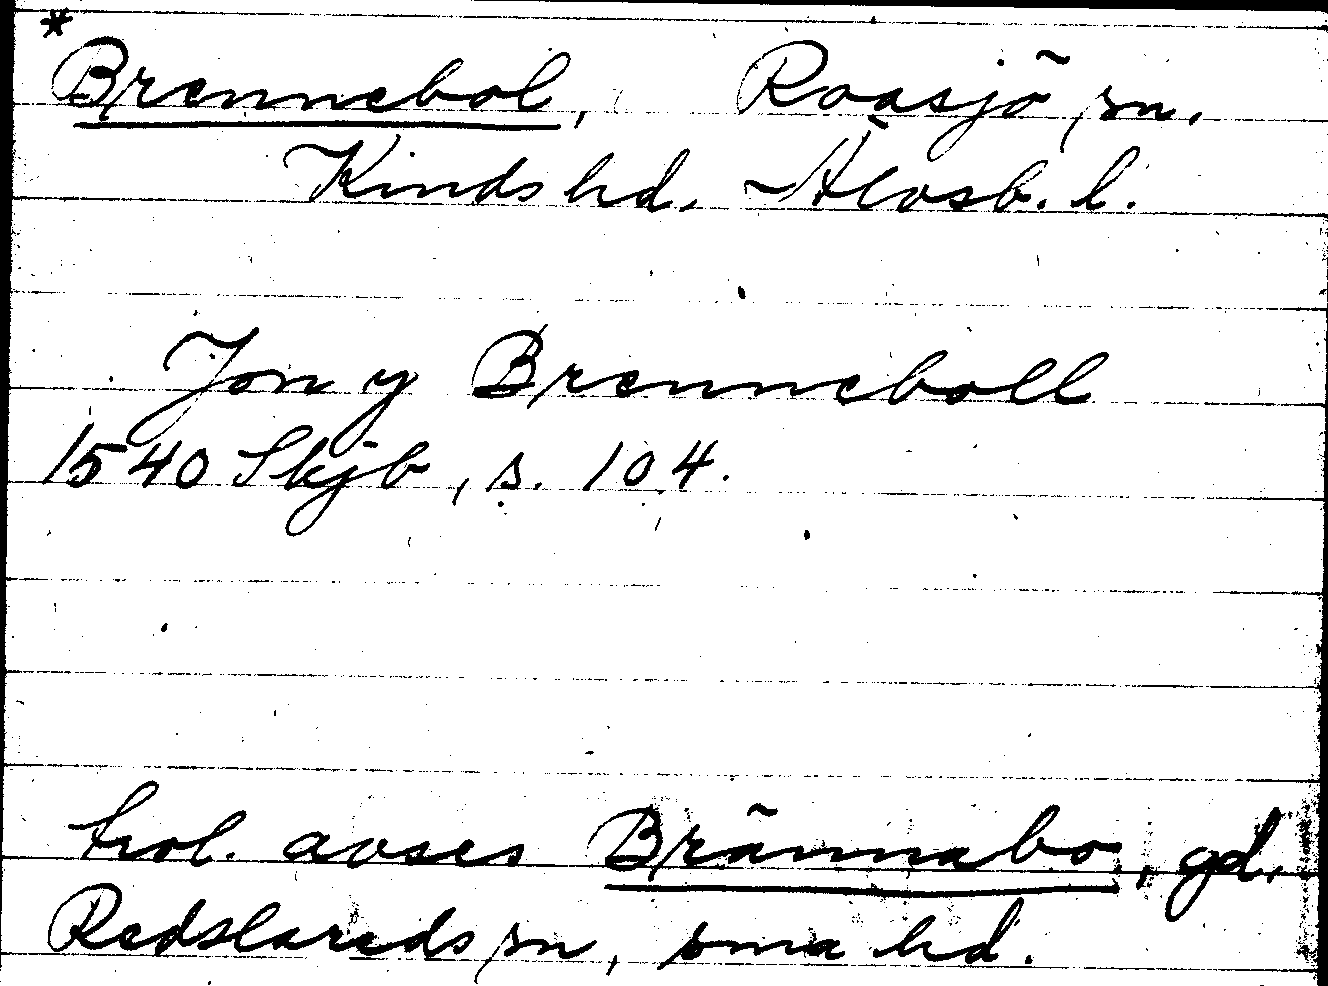 *
Brennebol, Roasjö sn.
Kinds hd. Älvsb. l.
Jon y Brenneboll
1540 Skjb, s. 104.
trol. avses Brännabo, gd.
Redslareds sn, sma hd.